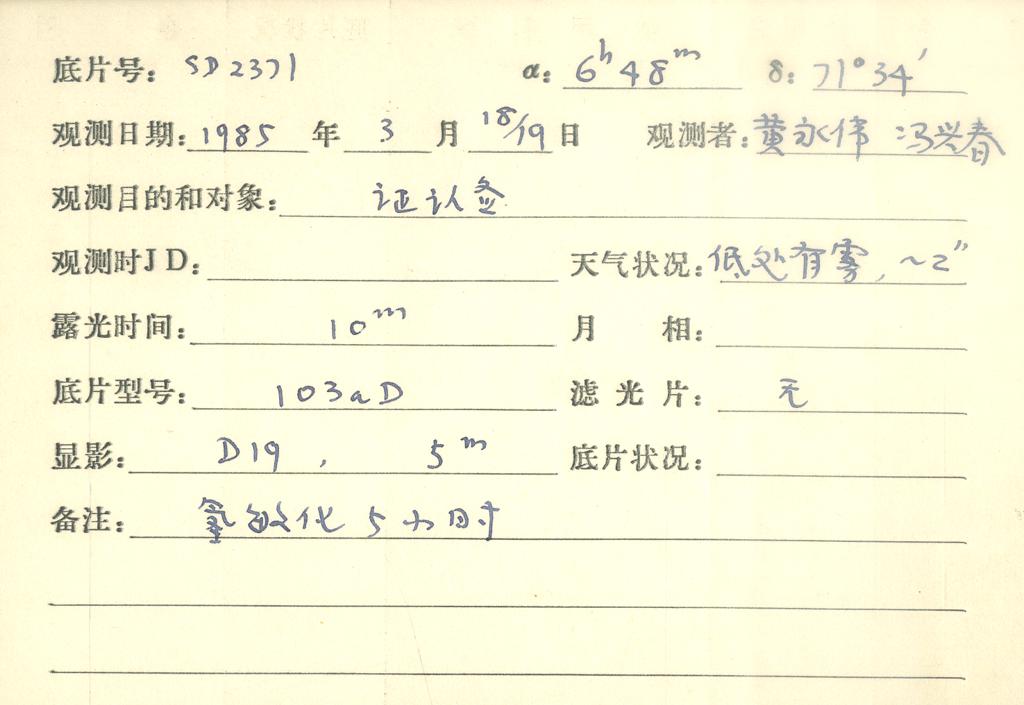 底片号: SD2371 α: 6h48m δ: 71°34′
观测日期: 1985 年 3 月 18/19 日 观测者: 黄永伟 冯兴春
观测目的和对象: 证认签
观测时JD: 天气状况: 低处有雾, ~2″
露光时间: 10m 月 相:
底片型号: 103aD 滤光片: 无
显影: D19, 5m 底片状况:
备注: 氢敏化 5小时